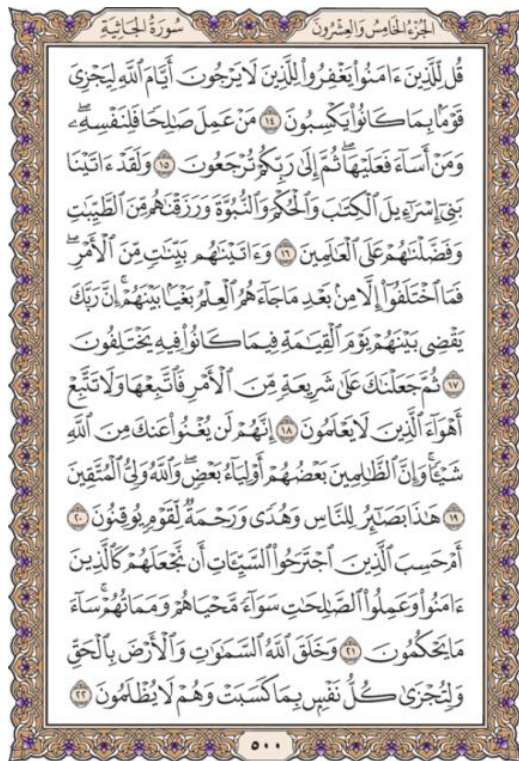 الجزء الخامس والعشرون سورة الجاثية
قُل لِّلَّذِينَ ءَامَنُوا۟ يَغْفِرُوا۟ لِلَّذِينَ لَا يَرْجُونَ أَيَّامَ ٱللَّهِ لِيَجْزِىَ
قَوْمَۢا بِمَا كَانُوا۟ يَكْسِبُونَ ١٤ مَنْ عَمِلَ صَـٰلِحًا فَلِنَفْسِهِۦ ۖ
وَمَنْ أَسَآءَ فَعَلَيْهَا ۖ ثُمَّ إِلَىٰ رَبِّكُمْ تُرْجَعُونَ ١٥ وَلَقَدْ ءَاتَيْنَا
بَنِىٓ إِسْرَٰٓءِيلَ ٱلْكِتَـٰبَ وَٱلْحُكْمَ وَٱلنُّبُوَّةَ وَرَزَقْنَـٰهُم مِّنَ ٱلطَّيِّبَـٰتِ
وَفَضَّلْنَـٰهُمْ عَلَى ٱلْعَـٰلَمِينَ ١٦ وَءَاتَيْنَـٰهُم بَيِّنَـٰتٍ مِّنَ ٱلْأَمْرِ ۖ
فَمَا ٱخْتَلَفُوٓا۟ إِلَّا مِنۢ بَعْدِ مَا جَآءَهُمُ ٱلْعِلْمُ بَغْيَۢا بَيْنَهُمْ ۚ إِنَّ رَبَّكَ
يَقْضِى بَيْنَهُمْ يَوْمَ ٱلْقِيَـٰمَةِ فِيمَا كَانُوا۟ فِيهِ يَخْتَلِفُونَ
١٧ ثُمَّ جَعَلْنَـٰكَ عَلَىٰ شَرِيعَةٍ مِّنَ ٱلْأَمْرِ فَٱتَّبِعْهَا وَلَا تَتَّبِعْ
أَهْوَآءَ ٱلَّذِينَ لَا يَعْلَمُونَ ١٨ إِنَّهُمْ لَن يُغْنُوا۟ عَنكَ مِنَ ٱللَّهِ
شَيْـًٔا ۚ وَإِنَّ ٱلظَّـٰلِمِينَ بَعْضُهُمْ أَوْلِيَآءُ بَعْضٍ ۖ وَٱللَّهُ وَلِىُّ ٱلْمُتَّقِينَ
١٩ هَـٰذَا بَصَـٰٓئِرُ لِلنَّاسِ وَهُدًى وَرَحْمَةٌ لِّقَوْمٍ يُوقِنُونَ ٢٠
أَمْ حَسِبَ ٱلَّذِينَ ٱجْتَرَحُوا۟ ٱلسَّيِّـَٔاتِ أَن نَّجْعَلَهُمْ كَٱلَّذِينَ
ءَامَنُوا۟ وَعَمِلُوا۟ ٱلصَّـٰلِحَـٰتِ سَوَآءً مَّحْيَاهُمْ وَمَمَاتُهُمْ ۚ سَآءَ
مَا يَحْكُمُونَ ٢١ وَخَلَقَ ٱللَّهُ ٱلسَّمَـٰوَٰتِ وَٱلْأَرْضَ بِٱلْحَقِّ
وَلِتُجْزَىٰ كُلُّ نَفْسِۭ بِمَا كَسَبَتْ وَهُمْ لَا يُظْلَمُونَ ٢٢
٥٠٠